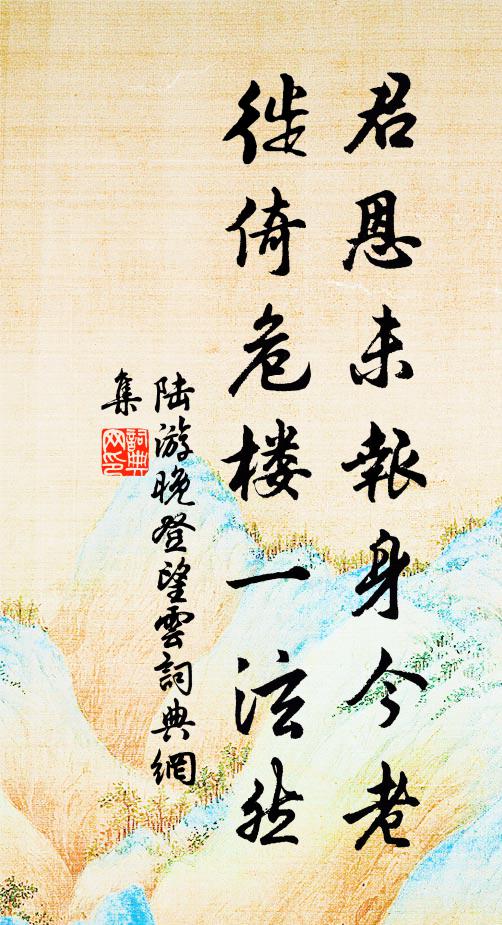 君恩未報身今老
徙倚危楼一泫然
陆游晚登望雲詞典網
集
詞典
网印